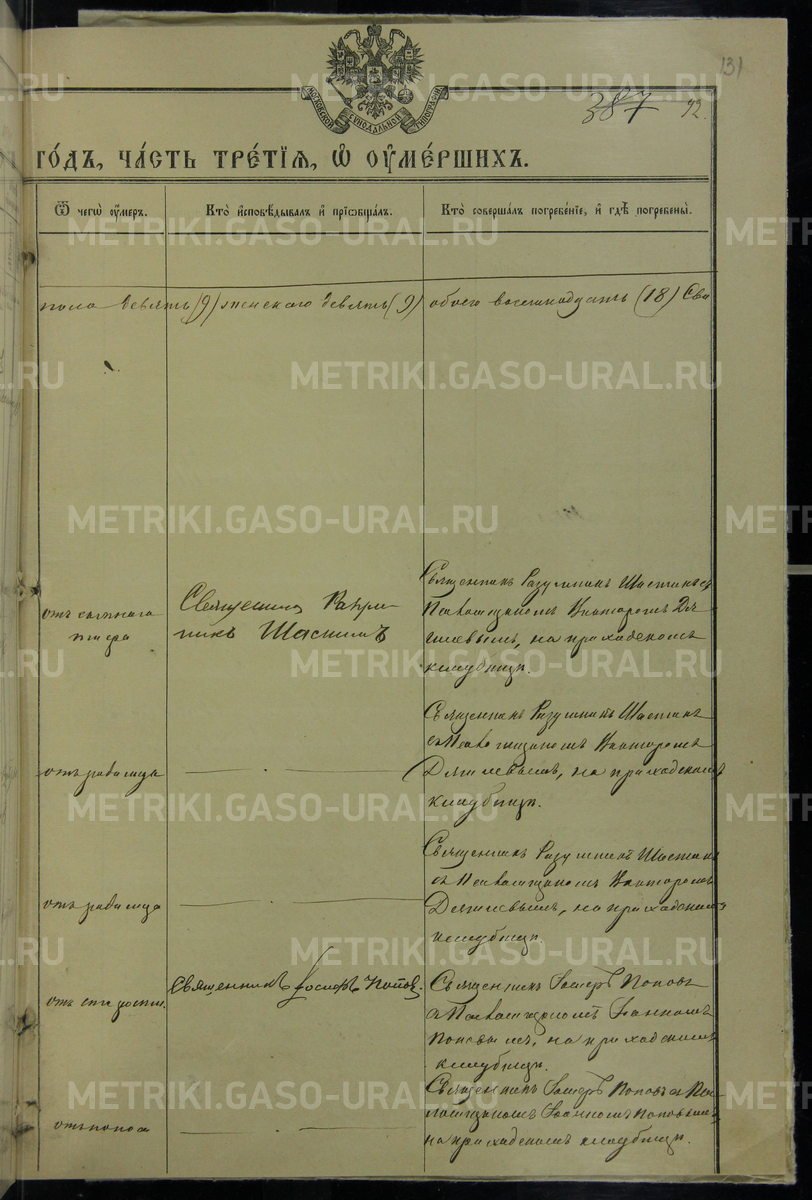 131
387 92.
МОСКОВСКОЙ СУНОДАЛЬНОЙ ТИПОГРАФІИ
ГО́ДЪ, ЧА́СТЬ ТРЕ́ТІѦ, Ѽ ОУ҆МЕ́РШИХЪ.
Ѿ чегѡ̀ оу҆́меръ.
Кто̀ и҆сповѣ́дывалъ и҆ прїѡбща́лъ.
Кто̀ соверша́лъ погребе́нїе, и҆ гдѣ̀ погребены̀.
пола девять (9) женскаго девять (9) обоего восемнадцать (18)
отъ
тифа
Священникъ
Шастинъ
Священникъ Разумникъ Шастинъ съ
Псаломщикомъ Викторомъ
на приходскомъ
кладбищѣ.
отъ родимца
Священникъ Разумникъ Шастинъ
съ Псаломщикомъ Викторомъ
на приходскомъ
кладбищѣ.
отъ родимца
Священникъ Разумникъ Шастинъ
съ Псаломщикомъ Викторомъ
на приходскомъ
кладбищѣ.
отъ старости.
Священникъ Іосифъ Поповъ.
Священникъ Іосифъ Поповъ
съ Псаломщикомъ Іоанномъ
Поповымъ, на приходскомъ
кладбищѣ.
отъ поноса
Священникъ Іосифъ Поповъ съ Пса-
ломщикомъ Іоанномъ Поповымъ,
на приходскомъ кладбищѣ.
METRIKI.GASO-URAL.RU